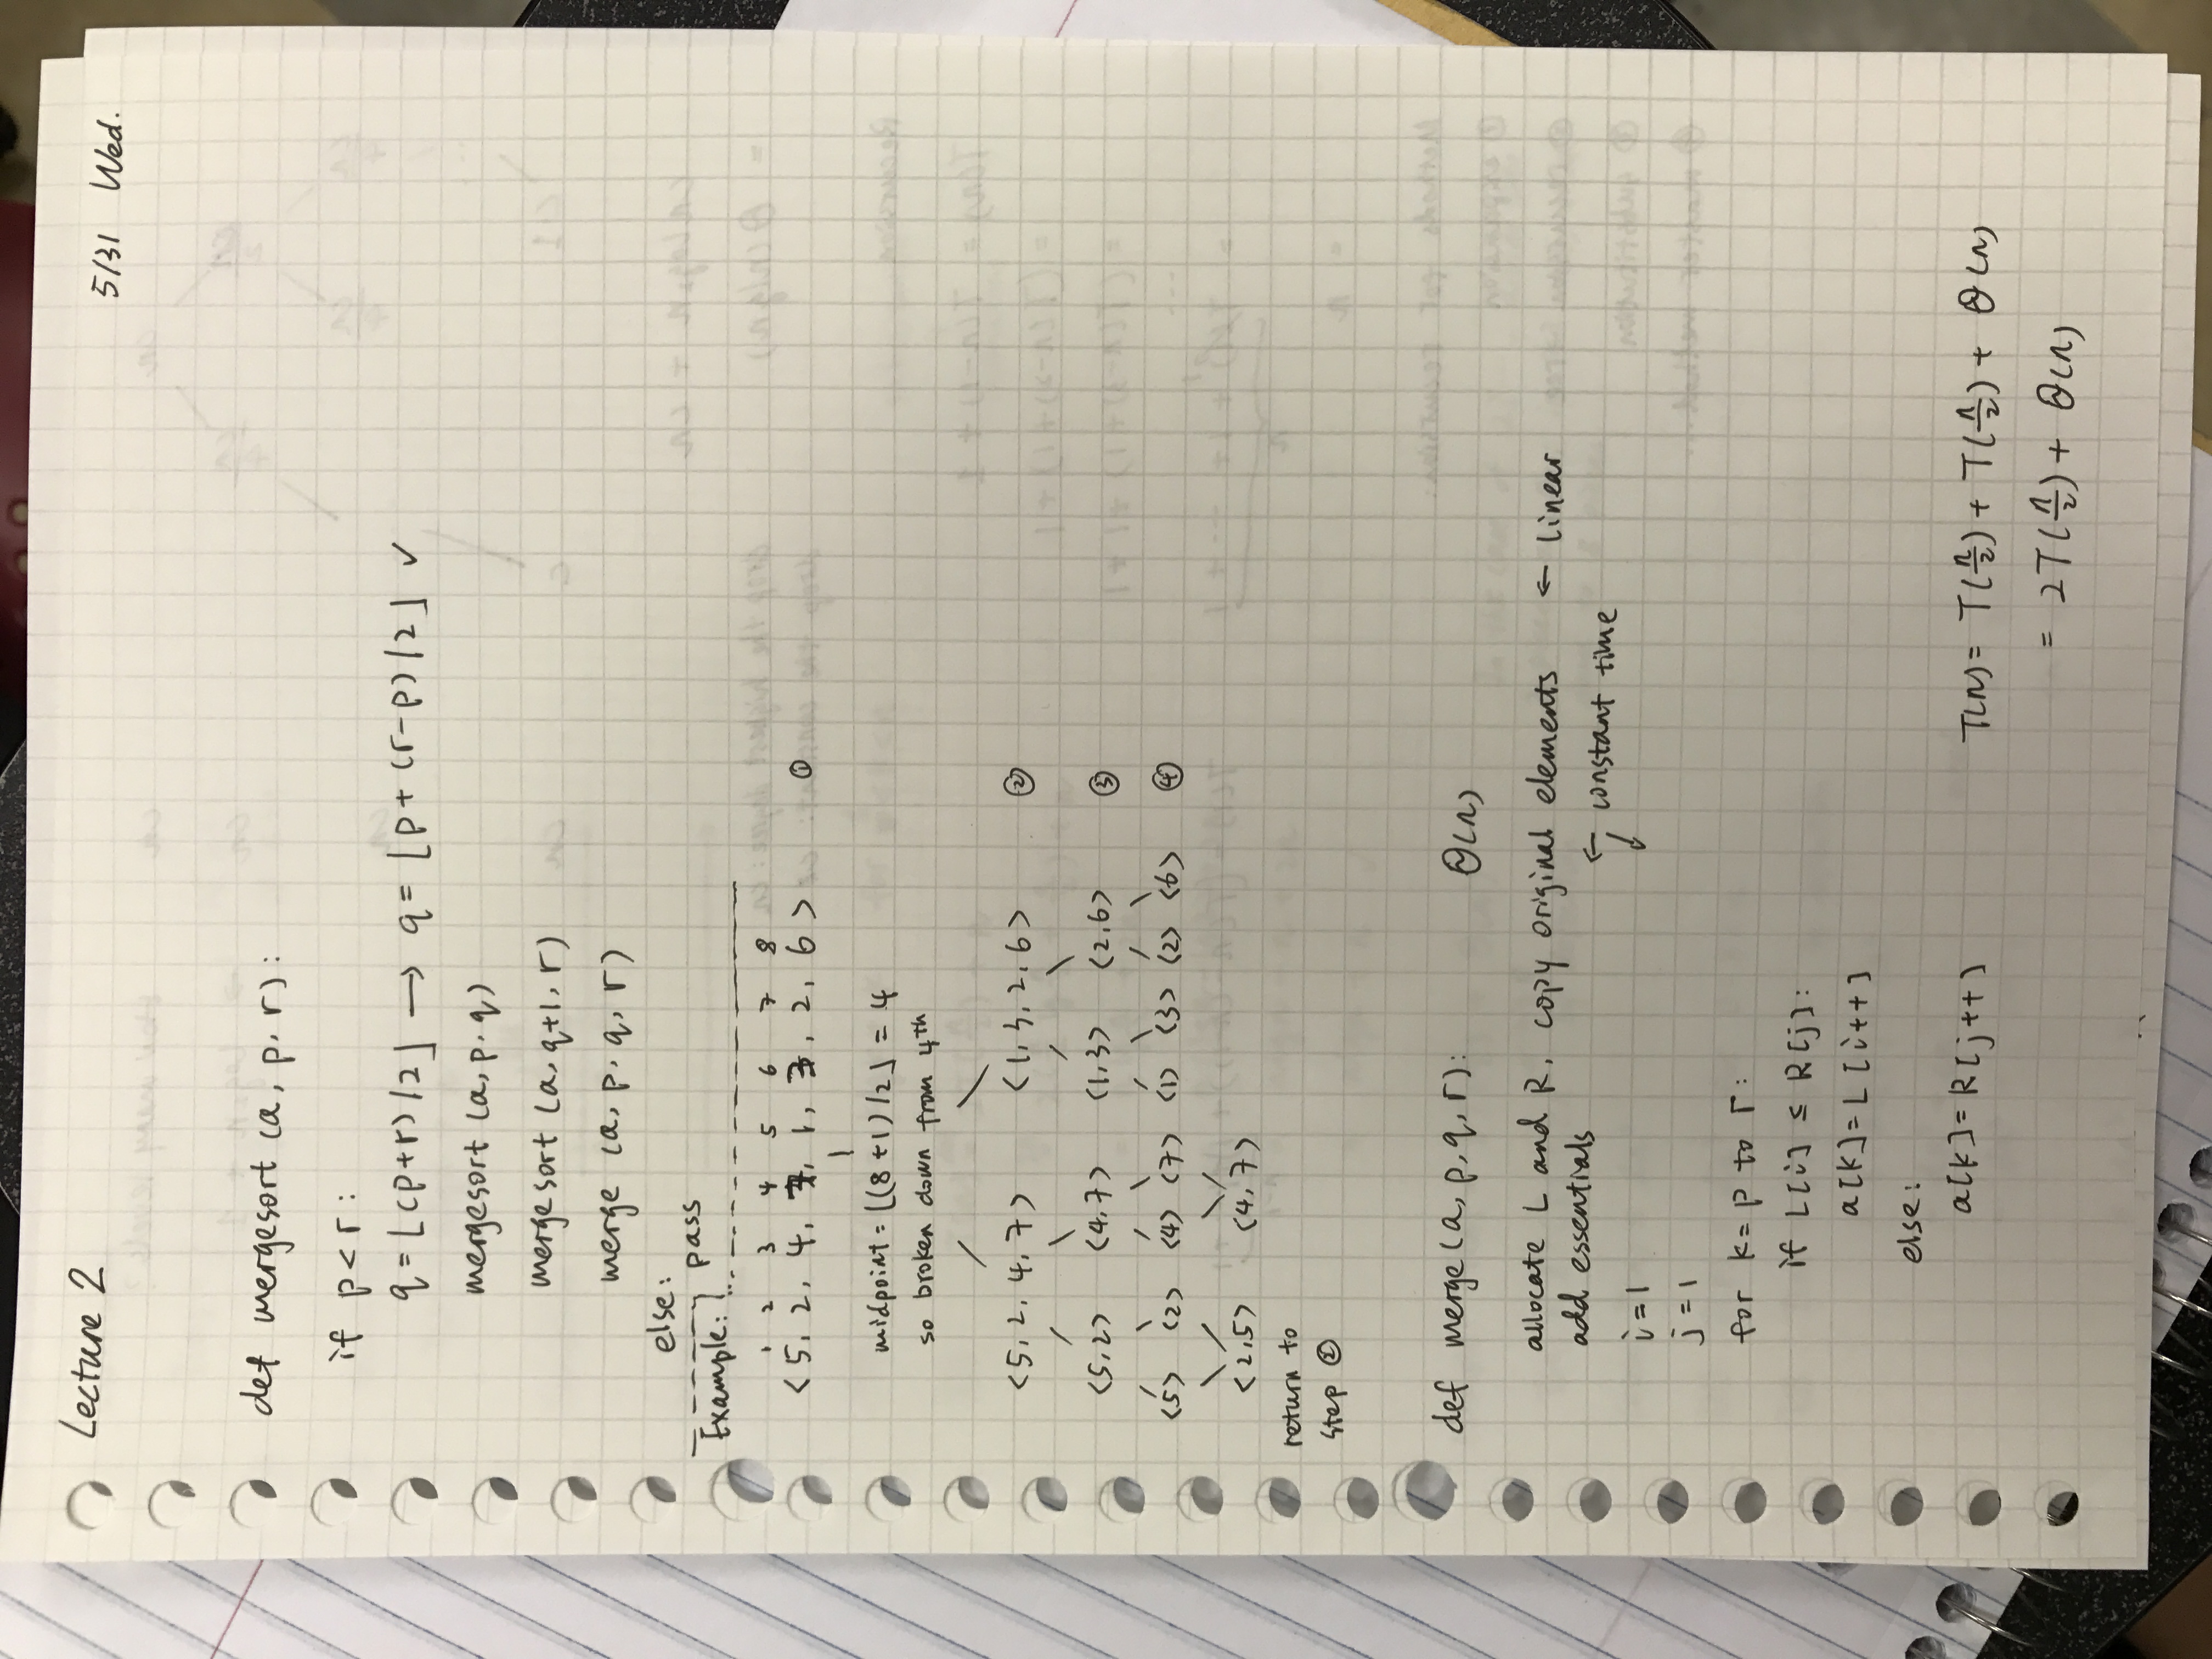 Lecture 2
5/31 Wed.
def mergesort (a, p, r):
if p < r:
q = ⌊(p+r)/2⌋ → q = ⌊p + (r-p)/2⌋ ✓
mergesort (a, p, q)
mergesort (a, q+1, r)
merge (a, p, q, r)
else:
pass
Example:
1 2 3 4 5 6 7 8
<5, 2, 4, 7, 1, 3, 2, 6> ①
midpoint = ⌊(8+1)/2⌋ = 4
so broken down from 4th
<5, 2, 4, 7> <1, 3, 2, 6> ②
<5, 2> <4, 7> <1, 3> <2, 6> ③
<5> <2> <4> <7> <1> <3> <2> <6> ④
<2, 5> <4, 7>
return to
step ②
def merge (a, p, q, r): Θ(n)
allocate L and R, copy original elements ← linear
add essentials
← constant time
↓
i = 1
j = 1
for k = p to r:
if L[i] ≤ R[j]:
a[k] = L[i++]
else:
a[k] = R[j++]
T(n) = T(n/2) + T(n/2) + Θ(n)
= 2T(n/2) + Θ(n)